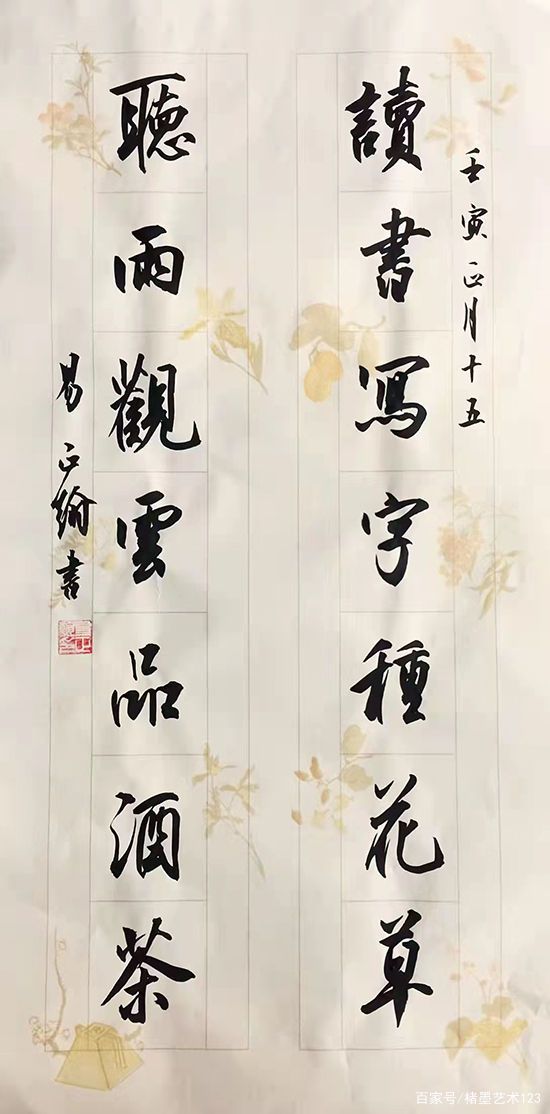 壬寅正月十五
讀書寫字種花草
聽雨觀雲品酒茶
易正綸書
百家号/楮墨艺术123